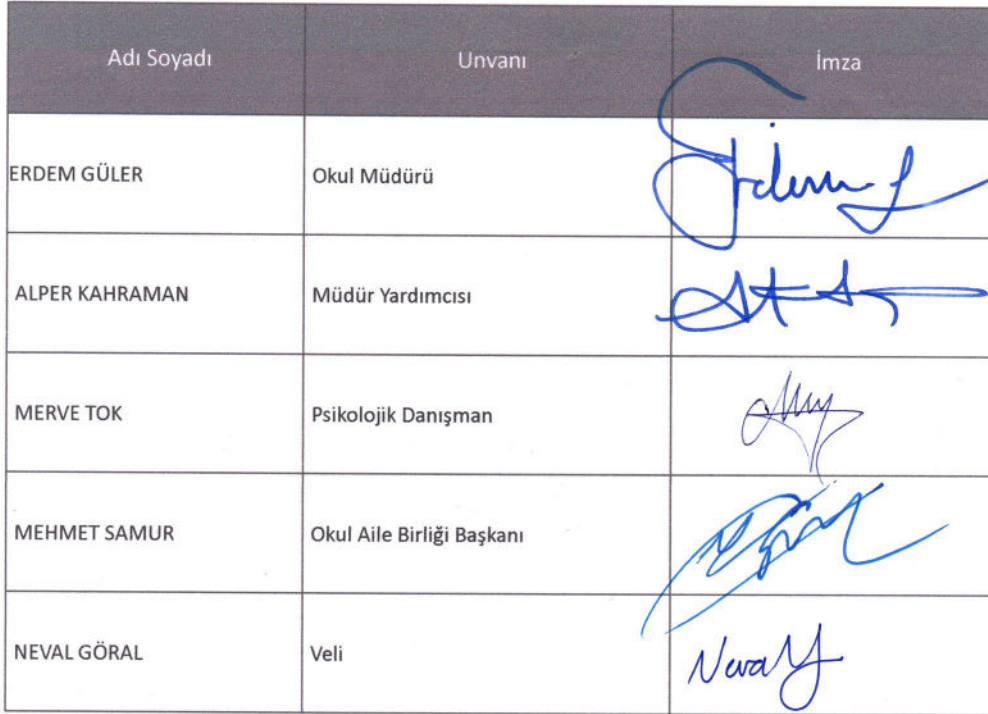 Adı Soyadı Unvanı İmza
ERDEM GÜLER Okul Müdürü
ALPER KAHRAMAN Müdür Yardımcısı
MERVE TOK Psikolojik Danışman
MEHMET SAMUR Okul Aile Birliği Başkanı
NEVAL GÖRAL Veli